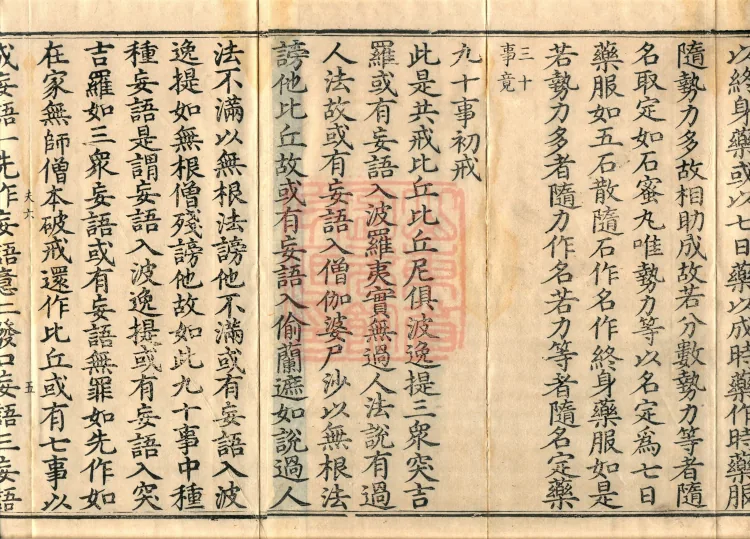 以終身藥或以七日藥以成時藥作時藥服
隨勢力多故相助成故若分數勢力等者隨
名取定如石蜜丸唯勢力等以名定為七日
藥服如五石散隨石作名作終身藥服如是
若勢力多者隨力作名若力等者隨名定藥
三十
事竟
九十事初戒
此是共戒比丘比丘尼俱波逸提三眾突吉
羅或有妄語入波羅夷實無過人法說有過
人法故或有妄語入僧伽婆尸沙以無根法
謗他比丘故或有妄語入偷蘭遮如說過人
法不滿以無根法謗他不滿或有妄語入波
逸提如無根僧殘謗他故如此九十事中種
種妄語是謂妄語入波逸提或有妄語入突
吉羅如三眾妄語或有妄語無罪如先作如
在家無師僧本破戒還作比丘或有七事以
夫六
五
成妄語一先作妄語意二發口妄語三妄語